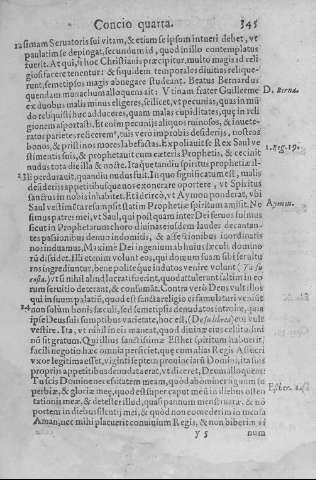 Concio quarta. 345
tissimam Seruatoris sui vitam, & etiam se ipsum intueri debet, vt
paulatim se depingat, secundum id, quod in illo contemplatus
fuerit. At qui, si hoc Christianis præcipitur, multo magis id reli
giosi facere tenentur: & siquidem temporales diuitias relique-
runt, semetipsos magis abnegare studeant. Beatus Bernardus
quendam monachum alloquens ait: Vtinam frater Guillerme
D. Berna.
ex duobus malis minus eligeres, scilicet, vt pecunias, quas in mú
do reliquisti huc adduceres, quam malas cupiditates, quę in reli
gionem asportasti. Et enim pecunijs aliquos ruinosos, & inuete-
ratos parietes reficerem, tuis vero improbis desiderijs, nostros
bonos, & pristinos mores labefactas. Expoliauit se Rex Saul ve
1. Reg. 19.
stimentis suis, & prophetauit cum cæteris Prophetis, & cecinit
nudus tota die illa & nocte. Itaque tandiu spiritus prophetiæ il-
li perdurauit, quandiu nudus fuit. In quo significatum est, malis
desiderijs appetitibusque nos exonerare oportere, vt Spiritus
sanctus in nobis inhabitet. Et ideireò, vt Aymon ponderat, vbi
Aymon.
Saul vestimenta resumpsit statim Prophetiæ spiritum amisit. Ne
simus patres mei, vt Saul, qui postquam inter Dei seruos fuimus
sicut in Prophetarum choro diuinas eiusdem laudes decantan-
tes passionibus demùm indomitis, & affectionibus inordinatis
nos induamus. Maximè Dei ingenium ab huius sæculi domino
rũ dissidet. Illi etenim volunt eos, qui domum suam sibi seruitu
ros ingrediuntur, bene politeque indutos venire volunt
yt si nihil aliud lucrati fuerint, quod attulerunt saltim in eo
rum seruitio deterant, & consumãt. Contra verò Deus vult illos
qui in suum palatiũ, quod est sancta religio ei famulaturi veniũt
24 non solùm bonis sæculi, sed semetipsis denudatos introire, quia
ipse Deus sui sumptibus varietate, hoc est, eos vult
vestire. Ita, vt nihil in eis maneat, quod diuinæ eius celsitudini
nõ sit gratum. Qui illius sanctissimæ Esther spiritum haberit,
facili negotio hæc omnia perficiet, quę cum alias Regis Assueri
vxor legitima esset, viginti septem prouinciarũ Domina, ita suis
proprijs appetitibus denudata erat, vt diceret, Deum alloquens:
Tu scis Domine necessitatem meam, quod abominer signum su
perbiæ, & gloriæ meæ, quod est super caput meũ in diebus osten
Esther. 14.
tationis meæ, & detester illud, quasi pannum menstruatæ, & nõ
portem in diebus silentij mei, & quòd non comederim in mensa
Aman, nec mihi placuerit conuiuium Regis, & non biberim vi
y 5 num